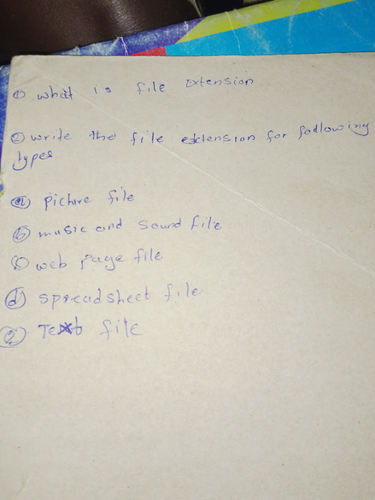 ① what is file Extension
② write the file extension for following
types
ⓐ picture file
ⓑ music and sound file
ⓒ web page file
ⓓ spreadsheet file
ⓔ Text file